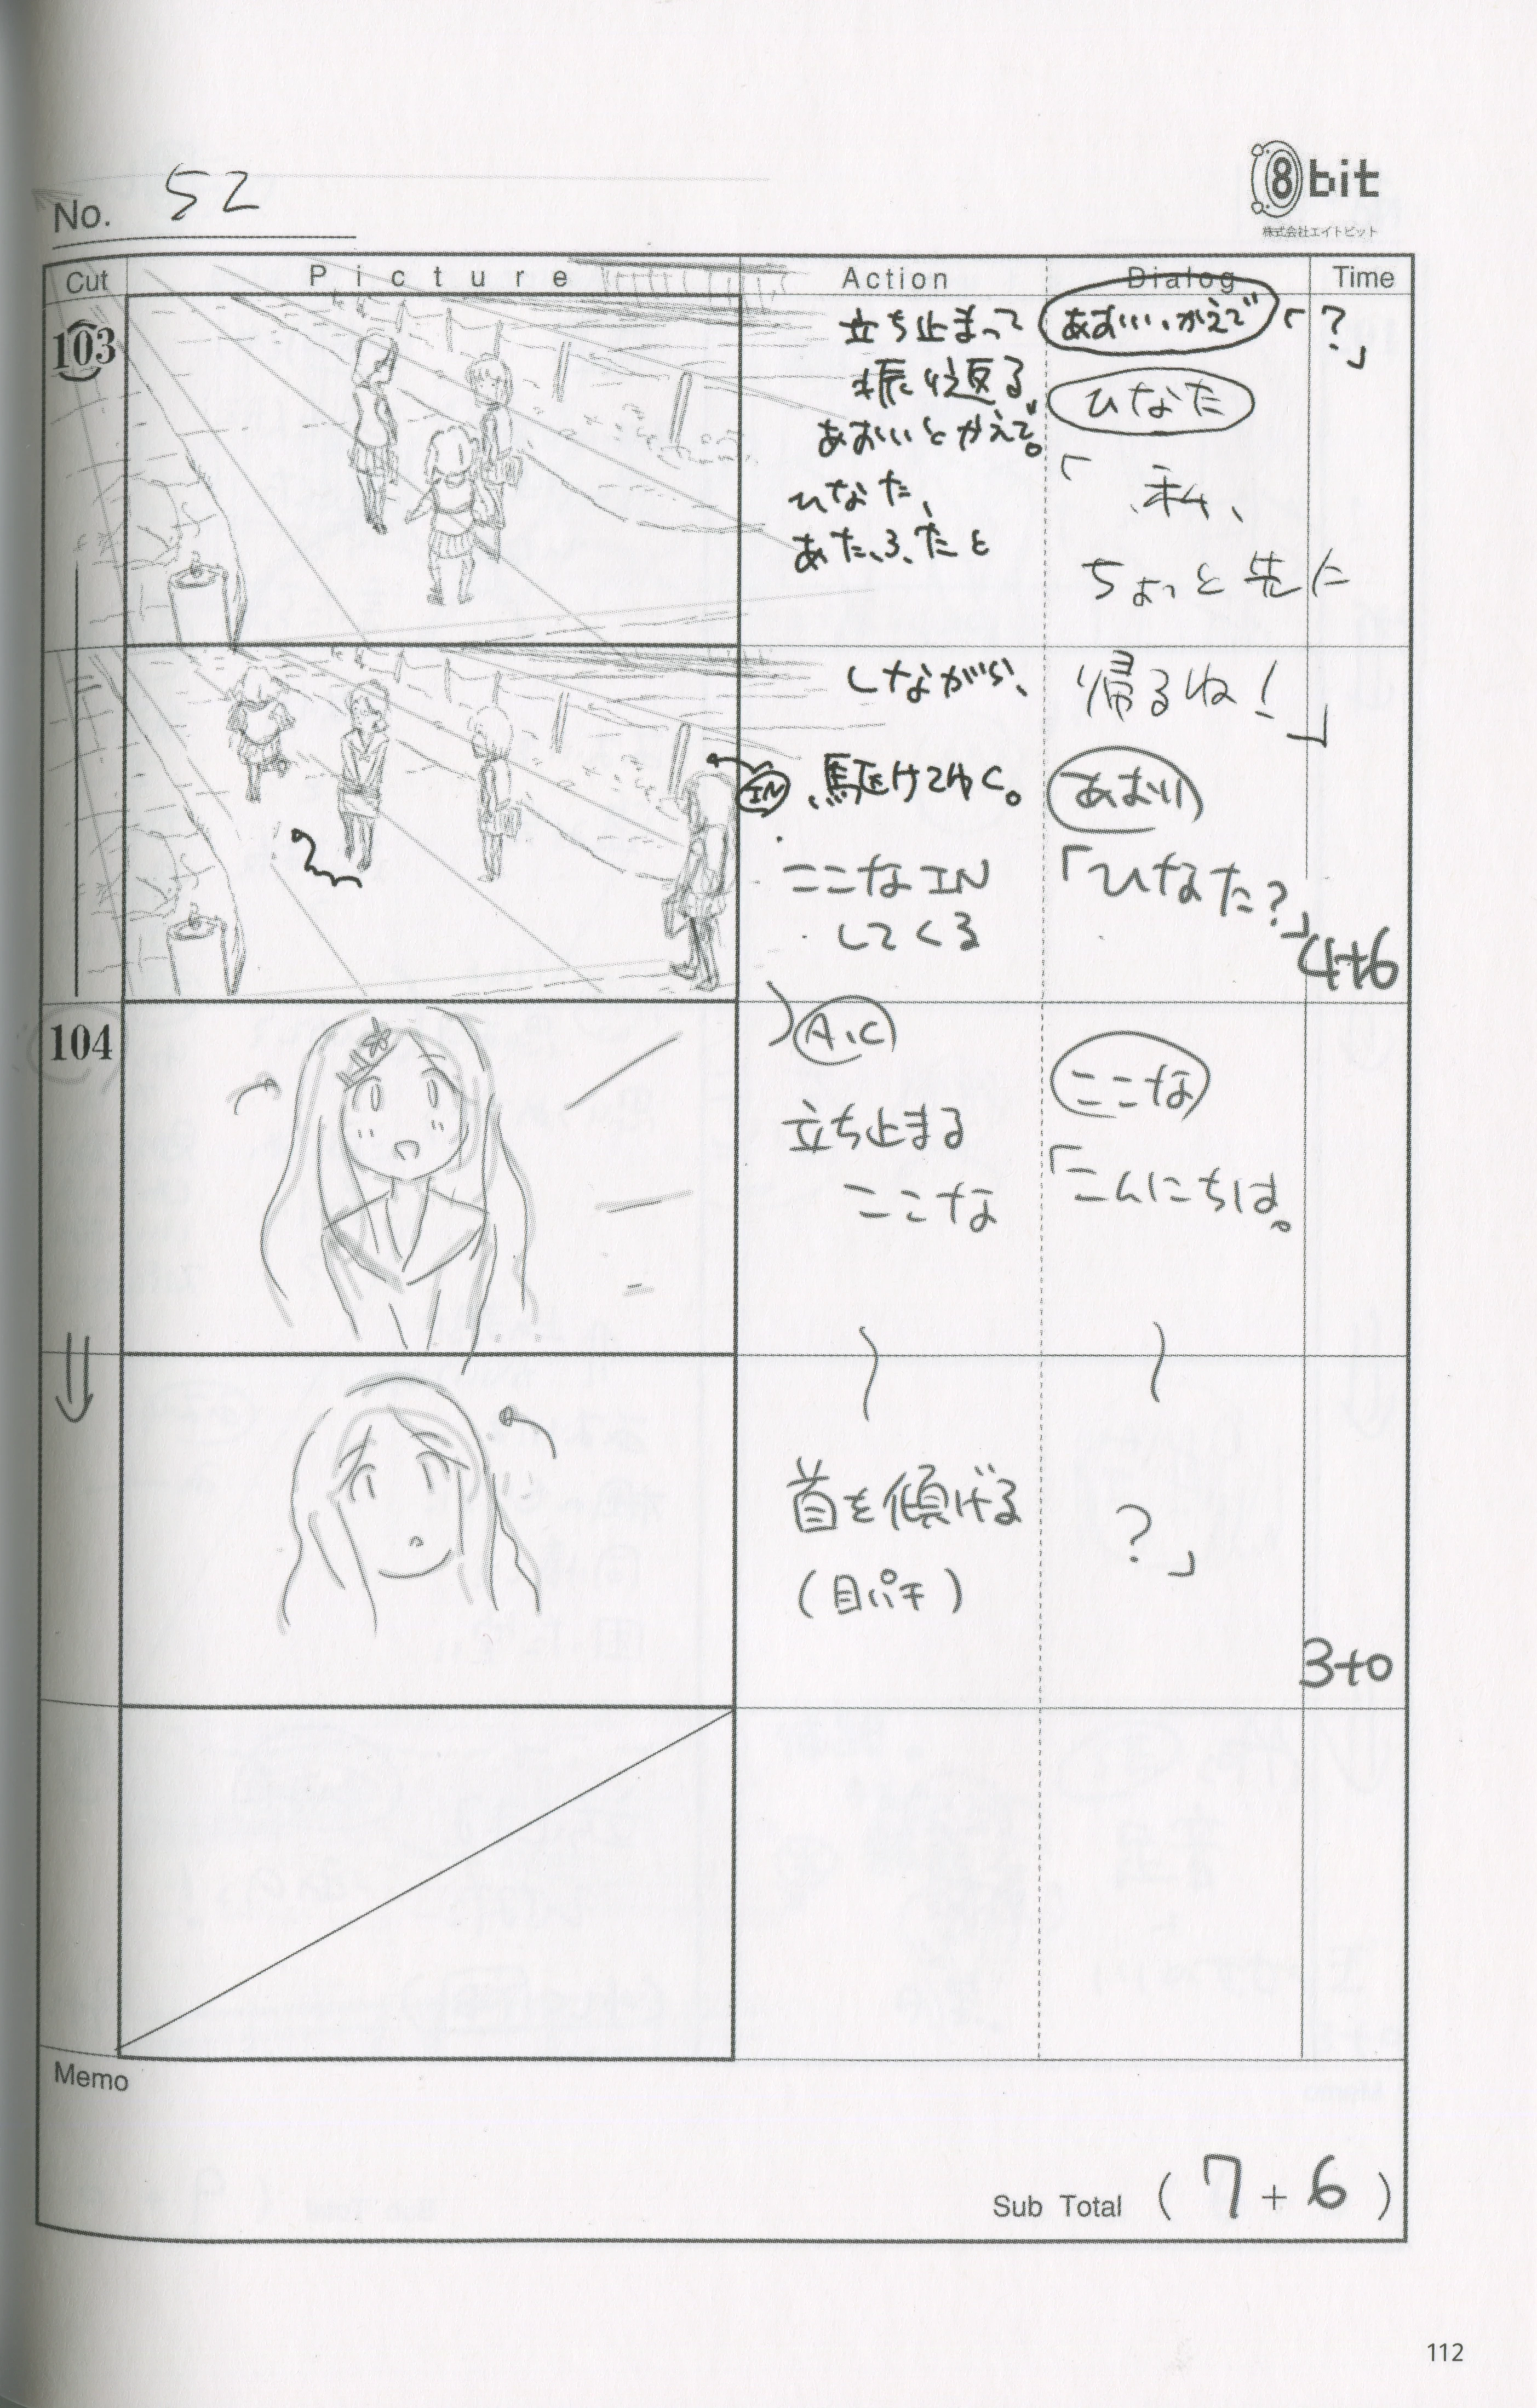 No. 52
8bit
株式会社エイトビット
Cut Picture Action Dialog Time
103
立ち止まって
振り返る、
あおいとかえで。
ひなた、
あたふたと
あおい・かえで「?」
ひなた
「私、
ちょっと先に
しながら、
駆けてゆく。
IN
ここなIN
してくる
帰るね!」
あおい
「ひなた?」
4+6
104
A.C
立ち止まる
ここな
ここな
「こんにちは。
首を傾げる
(目パチ)
?」
3+0
Memo
Sub Total (7+6)
112